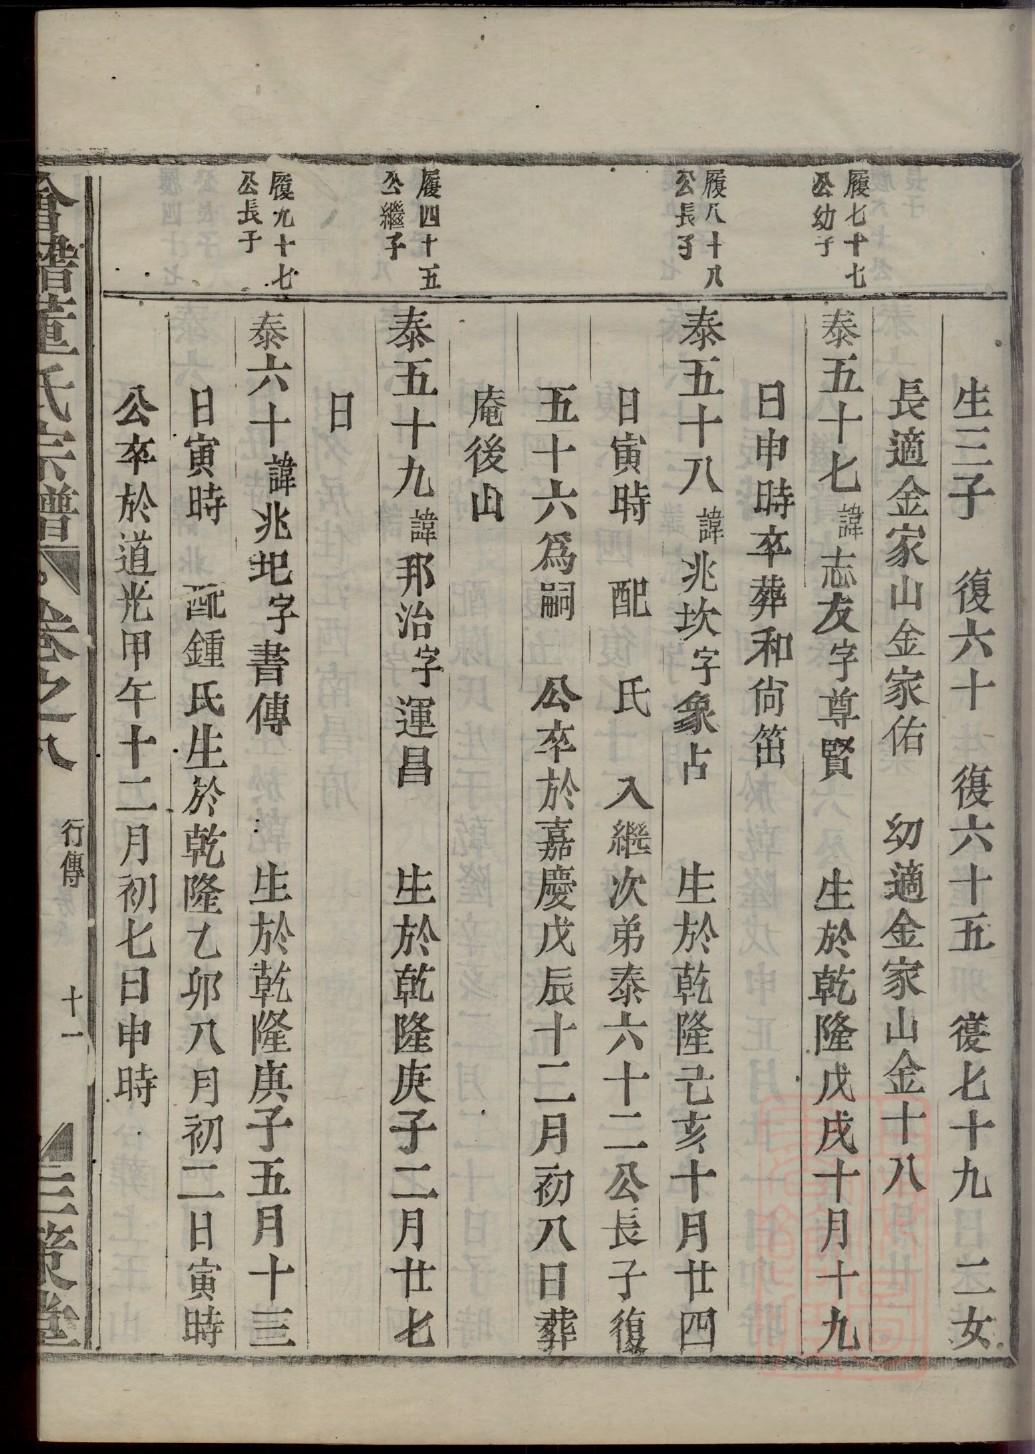 生三子　復六十　復六十五　復七十九　二女
長適金家山金家佑　幼適金家山金十八
履七十七
公幼子
泰五十七諱志友字尊賢　生於乾隆戊戌十月十九
日申時卒葬和尙笛
履八十八
公長子
泰五十八諱兆坎字象占　生於乾隆己亥十月廿四
日寅時　配　氏　入繼次弟泰六十二公長子復
五十六爲嗣　公卒於嘉慶戊辰十二月初八日葬
庵後山
履四十五
公繼子
泰五十九諱邦治字運昌　生於乾隆庚子二月廿七
日
履九十七
公長子
泰六十諱兆圯字書傳　生於乾隆庚子五月十三
日寅時　配鍾氏生於乾隆乙卯八月初二日寅時
公卒於道光甲午十二月初七日申時
會稽董氏宗譜　卷之八　行傳　十一　三策堂